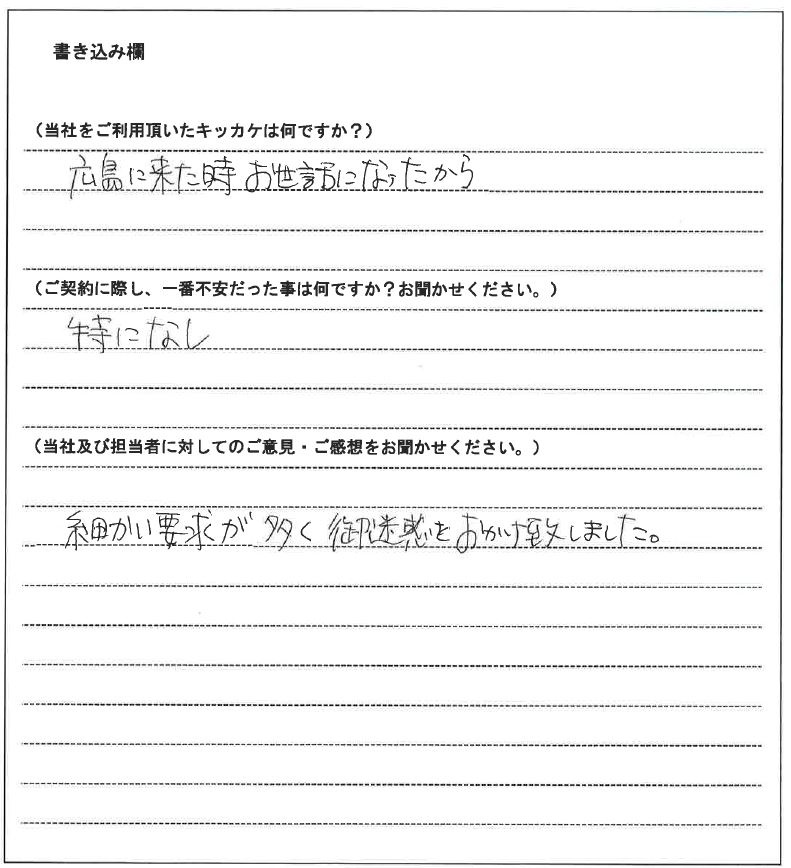 書き込み欄
（当社をご利用頂いたキッカケは何ですか？）
広島に来た時 お世話になったから
（ご契約に際し、一番不安だった事は何ですか？お聞かせください。）
特になし
（当社及び担当者に対してのご意見・ご感想をお聞かせください。）
細かい要求が多く御迷惑をおかけ致しました。